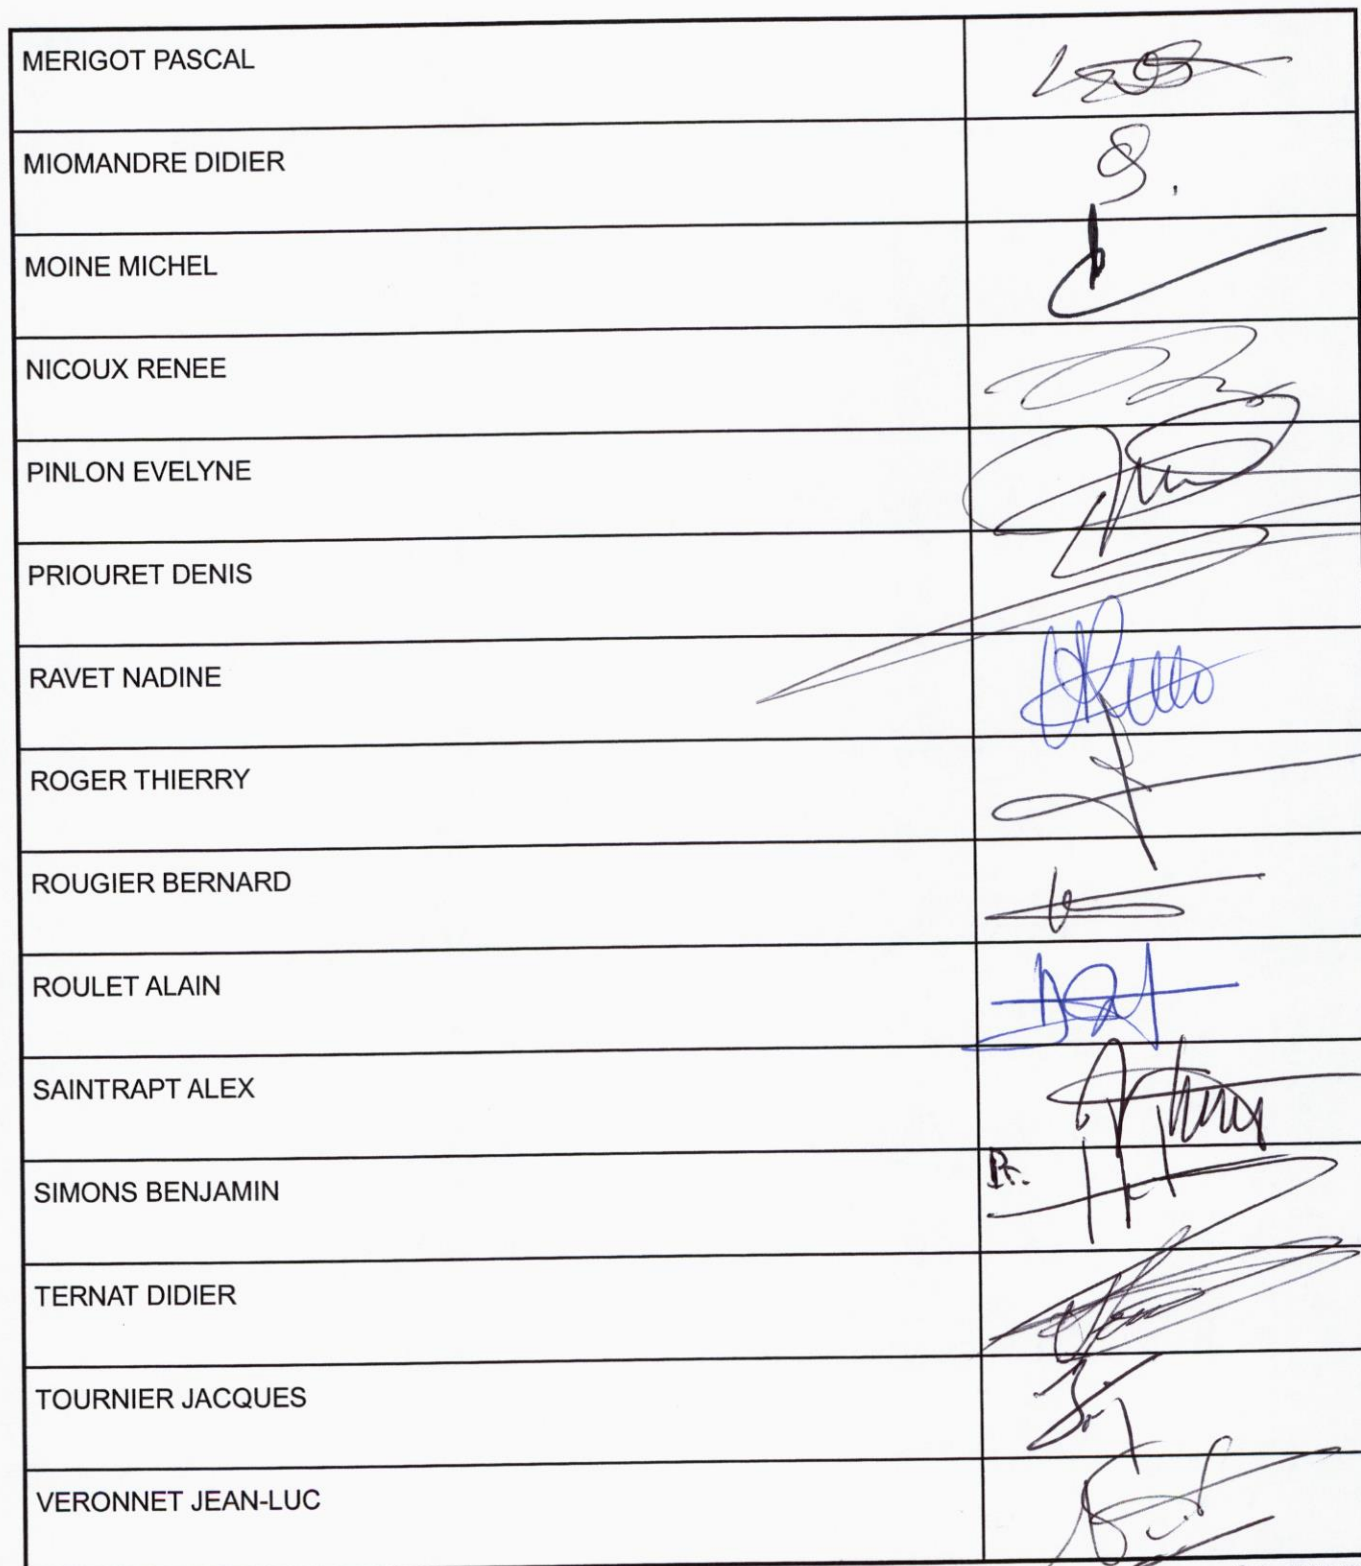 MERIGOT PASCAL
MIOMANDRE DIDIER
MOINE MICHEL
NICOUX RENEE
PINLON EVELYNE
PRIOURET DENIS
RAVET NADINE
ROGER THIERRY
ROUGIER BERNARD
ROULET ALAIN
SAINTRAPT ALEX
SIMONS BENJAMIN
TERNAT DIDIER
TOURNIER JACQUES
VERONNET JEAN-LUC